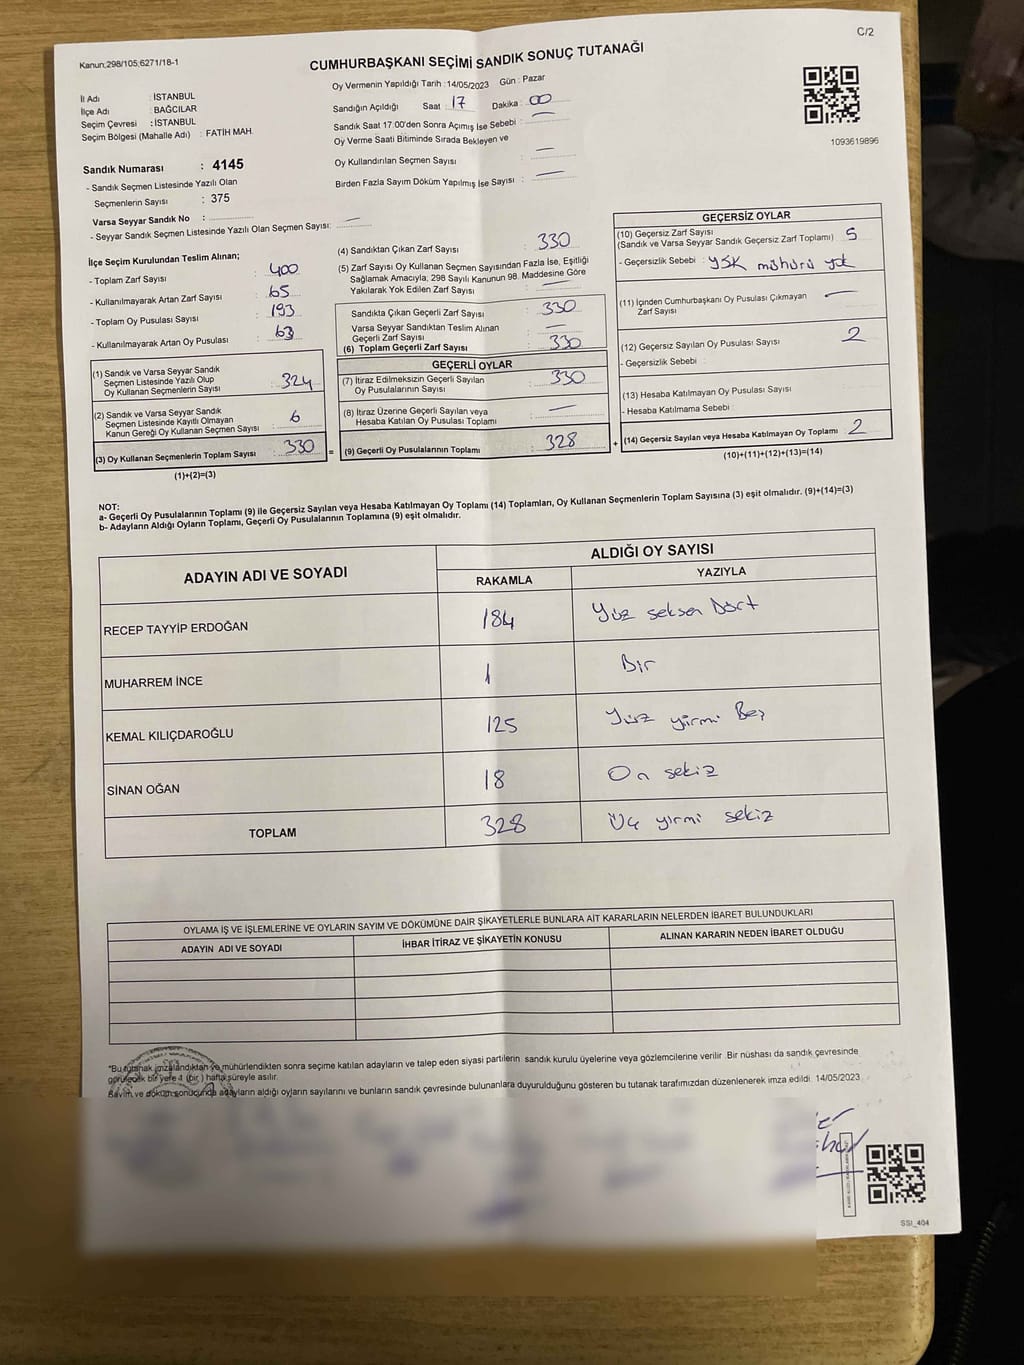 C/2
Kanun:298/105;6271/18-1
CUMHURBAŞKANI SEÇİMİ SANDIK SONUÇ TUTANAĞI
İl Adı : İSTANBUL
İlçe Adı : BAĞCILAR
Seçim Çevresi : İSTANBUL
Seçim Bölgesi (Mahalle Adı) : FATİH MAH.
Oy Vermenin Yapıldığı Tarih :14/05/2023 Gün : Pazar
Sandığın Açıldığı Saat : 17 Dakika : 00
Sandık Saat 17:00'den Sonra Açımış İse Sebebi : —
Oy Verme Saati Bitiminde Sırada Bekleyen ve
Oy Kullandırılan Seçmen Sayısı : —
Birden Fazla Sayım Döküm Yapılmış İse Sayısı : —
1093619896
Sandık Numarası : 4145
- Sandık Seçmen Listesinde Yazılı Olan
Seçmenlerin Sayısı : 375
Varsa Seyyar Sandık No :
- Seyyar Sandık Seçmen Listesinde Yazılı Olan Seçmen Sayısı: —
İlçe Seçim Kurulundan Teslim Alınan;
- Toplam Zarf Sayısı : 400
- Kullanılmayarak Artan Zarf Sayısı : 65
- Toplam Oy Pusulası Sayısı : 193
- Kullanılmayarak Artan Oy Pusulası : 63
(1) Sandık ve Varsa Seyyar Sandık
Seçmen Listesinde Yazılı Olup
Oy Kullanan Seçmenlerin Sayısı : 324
(2) Sandık ve Varsa Seyyar Sandık
Seçmen Listesinde Kayıtlı Olmayan
Kanun Gereği Oy Kullanan Seçmen Sayısı : 6
(3) Oy Kullanan Seçmenlerin Toplam Sayısı : 330 =
(1)+(2)=(3)
(4) Sandıktan Çıkan Zarf Sayısı : 330
(5) Zarf Sayısı Oy Kullanan Seçmen Sayısından Fazla İse, Eşitliği
Sağlamak Amacıyla; 298 Sayılı Kanunun 98. Maddesine Göre
Yakılarak Yok Edilen Zarf Sayısı : —
Sandıkta Çıkan Geçerli Zarf Sayısı : 330
Varsa Seyyar Sandıktan Teslim Alınan
Geçerli Zarf Sayısı : —
(6) Toplam Geçerli Zarf Sayısı : 330
GEÇERLİ OYLAR
(7) İtiraz Edilmeksizin Geçerli Sayılan
Oy Pusulalarının Sayısı : 330
(8) İtiraz Üzerine Geçerli Sayılan veya
Hesaba Katılan Oy Pusulası Toplamı : —
(9) Geçerli Oy Pusulalarının Toplamı : 328 +
GEÇERSİZ OYLAR
(10) Geçersiz Zarf Sayısı
(Sandık ve Varsa Seyyar Sandık Geçersiz Zarf Toplamı) : 5
- Geçersizlik Sebebi : YSK mühürü yok
(11) İçinden Cumhurbaşkanı Oy Pusulası Çıkmayan
Zarf Sayısı : —
(12) Geçersiz Sayılan Oy Pusulası Sayısı : 2
- Geçersizlik Sebebi :
(13) Hesaba Katılmayan Oy Pusulası Sayısı :
- Hesaba Katılmama Sebebi :
(14) Geçersiz Sayılan veya Hesaba Katılmayan Oy Toplamı : 2
(10)+(11)+(12)+(13)=(14)
NOT:
a- Geçerli Oy Pusulalarının Toplamı (9) ile Geçersiz Sayılan veya Hesaba Katılmayan Oy Toplamı (14) Toplamları, Oy Kullanan Seçmenlerin Toplam Sayısına (3) eşit olmalıdır. (9)+(14)=(3)
b- Adayların Aldığı Oyların Toplamı, Geçerli Oy Pusulalarının Toplamına (9) eşit olmalıdır.
ADAYIN ADI VE SOYADI ALDIĞI OY SAYISI
RAKAMLA YAZIYLA
RECEP TAYYİP ERDOĞAN 184 Yüz seksen Dört
MUHARREM İNCE 1 Bir
KEMAL KILIÇDAROĞLU 125 Yüz yirmi Beş
SİNAN OĞAN 18 On sekiz
TOPLAM 328 Üç yirmi sekiz
OYLAMA İŞ VE İŞLEMLERİNE VE OYLARIN SAYIM VE DÖKÜMÜNE DAİR ŞİKAYETLERLE BUNLARA AİT KARARLARIN NELERDEN İBARET BULUNDUKLARI
ADAYIN ADI VE SOYADI İHBAR İTİRAZ VE ŞİKAYETİN KONUSU ALINAN KARARIN NEDEN İBARET OLDUĞU
*Bu tutanak imzalandıktan ve mühürlendikten sonra seçime katılan adayların ve talep eden siyasi partilerin sandık kurulu üyelerine veya gözlemcilerine verilir. Bir nüshası da sandık çevresinde
görülecek bir yere 1 (bir ) hafta süreyle asılır.
Sayım ve döküm sonucunda adayların aldığı oyların sayılarını ve bunların sandık çevresinde bulunanlara duyurulduğunu gösteren bu tutanak tarafımızdan düzenlenerek imza edildi. 14/05/2023
SSI_404